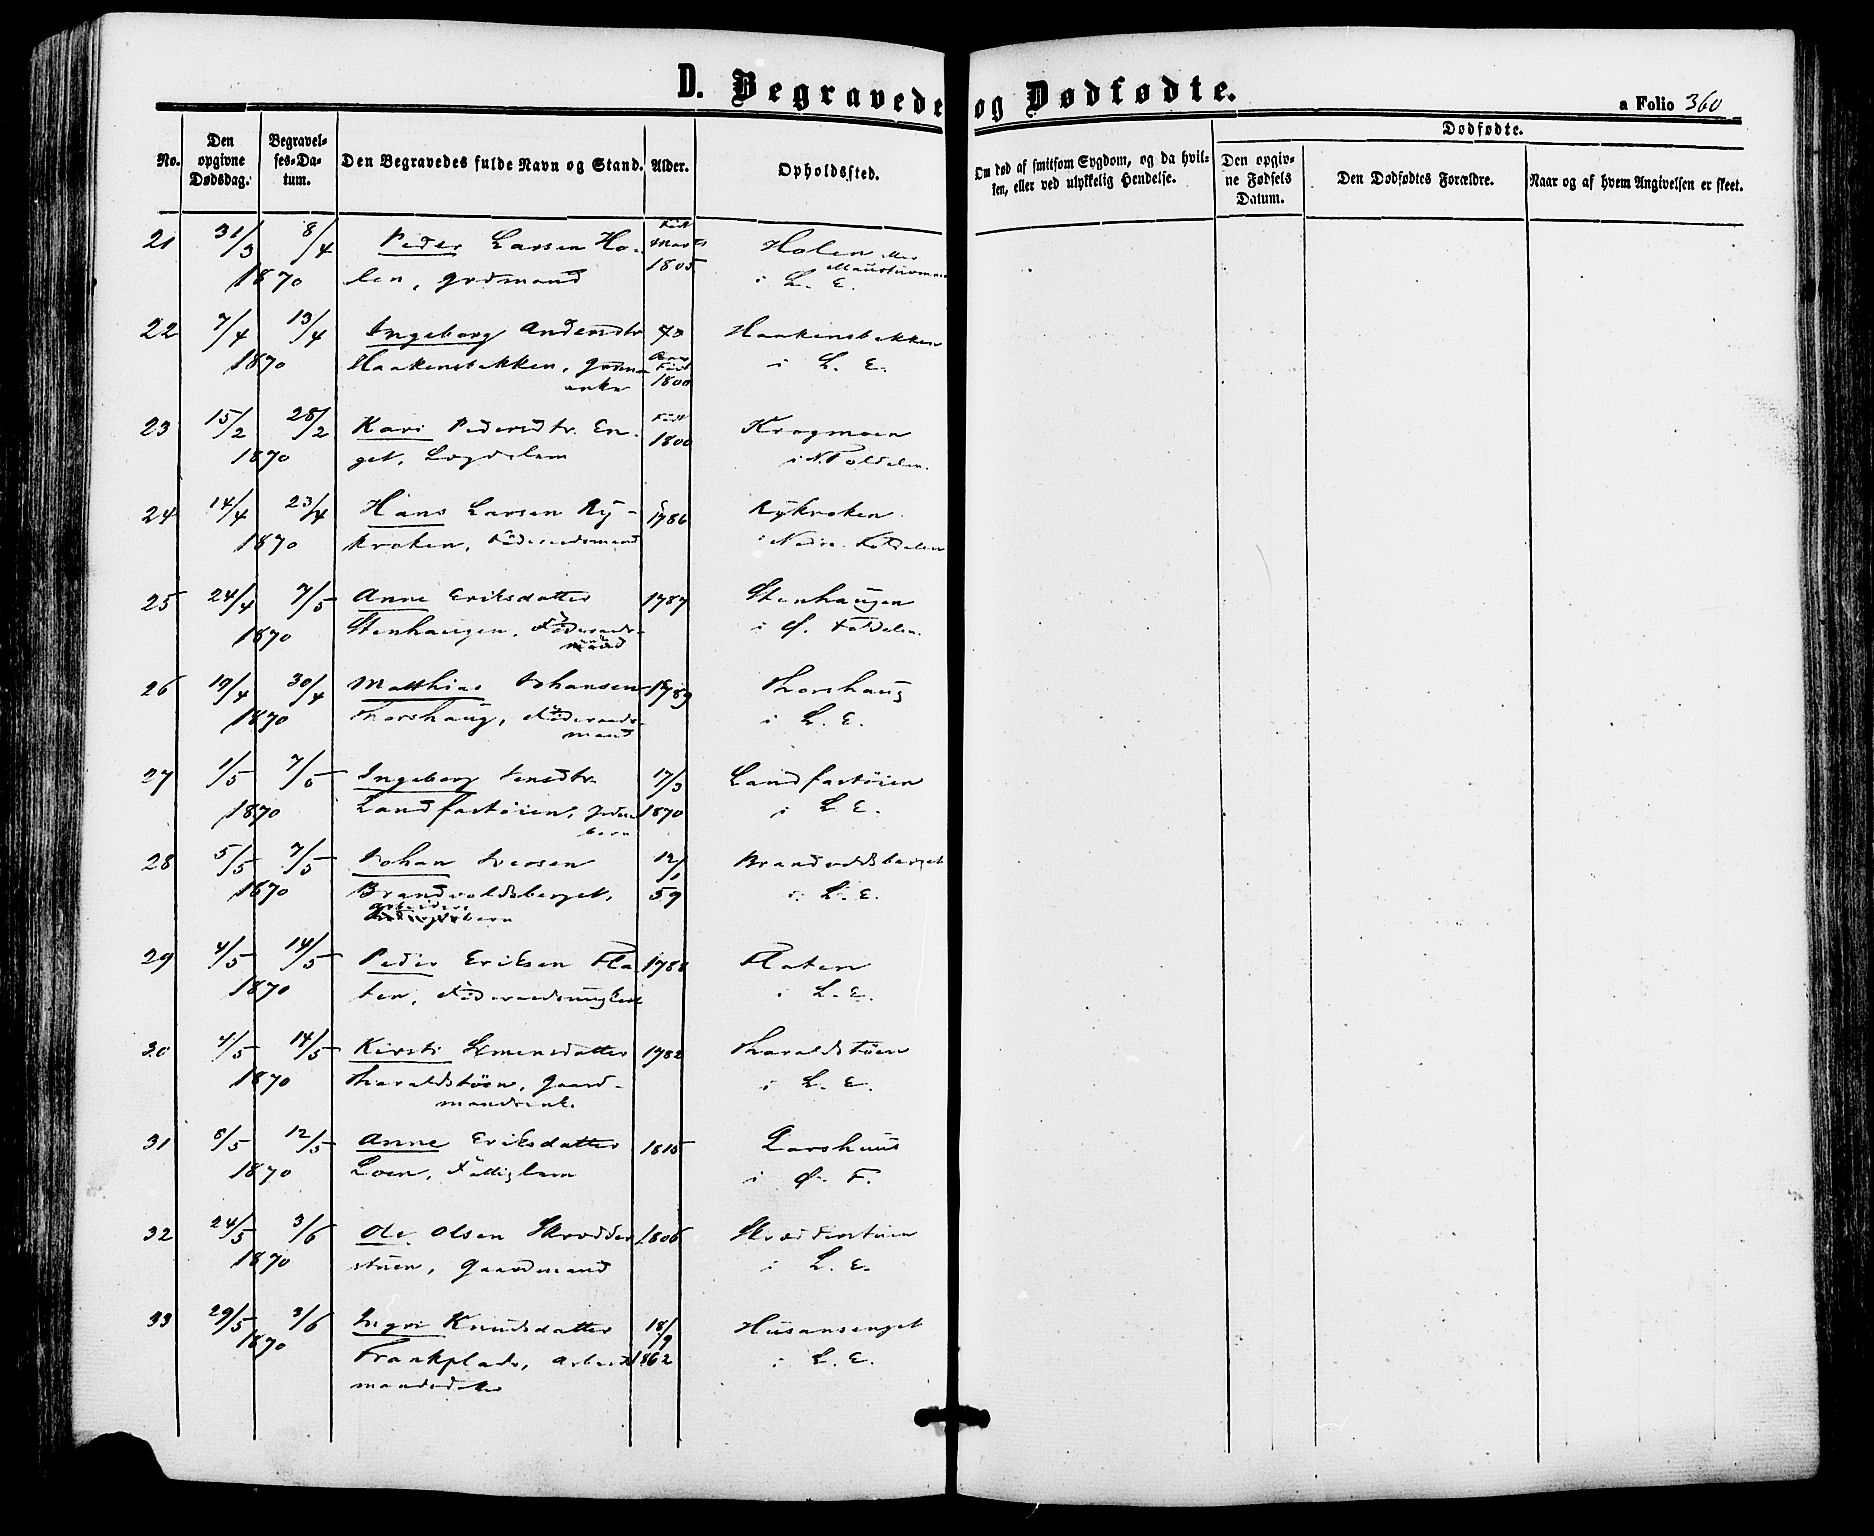 D. Begravede og Dødfødte.
a Folio 360
No.
Den opgivne Dødsdag.
Begravelses-Datum.
Den Begravedes fulde Navn og Stand.
Alder.
Opholdssted.
Om død af smitsom Sygdom, og da hvilken, eller ved ulykkelig Hendelse.
Dødfødte.
Den opgivne Fødsels Datum.
Den Dødfødtes Forældre.
Naar og af hvem Angivelsen er skeet.
21 31/3 8/4 Peder Larsen Ho- Født Marts Holen eller
1870 len, grdmand 1805 i L. E.
22 7/4 13/4 Ingeborg 70 Haakensbakken
1870 Haakensbakken, Født 1800 i L. E.
23 15/2 28/2 Kari Pedersdtr. En- Født 1800 Krogmoen
1870 get, Lægdslem i N. Foldalen.
24 14/4 23/4 Hans Larsen Ry- 1786 Rykroken
1870 kroken, Föderaadsmand i Nedre Foldalen
25 24/4 7/5 Anne Eriksdatter 1787 Stenhaugen
1870 Stenhaugen, Föderaads- i Ø. Foldalen.
26 19/4 30/4 Matthias Johansen 1789 Thorshaug
1870 Thorshaug, Föderaads- i L. E.
mand
27 1/5 7/5 Ingeborg 17/3 Landfastøien
1870 Landfastøien, 1870 i L E.
barn
28 5/5 7/5 Johan Iversen 12/1 Brandvoldsberget
1870 Brandvoldsberget, 59 i L. E.
29 4/5 14/5 Peder Eriksen Fla- 1788 Flaten
1870 ten, i L. E.
30 4/5 14/5 Kirsti Simensdatter 1782 Tharaldstøen
1870 Tharaldstøen, Gaard- i L. E.
mandsenk.
31 8/5 12/5 Anne Eriksdatter 1815 Larshuus
1870 Loen, Fattiglem i Ø. F.
32 24/5 3/6 Ole Olsen Skrædder 1806 Skrædderstuen
1870 stuen, Gaardmand i L. E.
33 29/5 3/6 Ingri Knudsdatter 18/9 Husansenget
1870 Traakplads, Arbeids 1862 i L. E.
mandsdatter